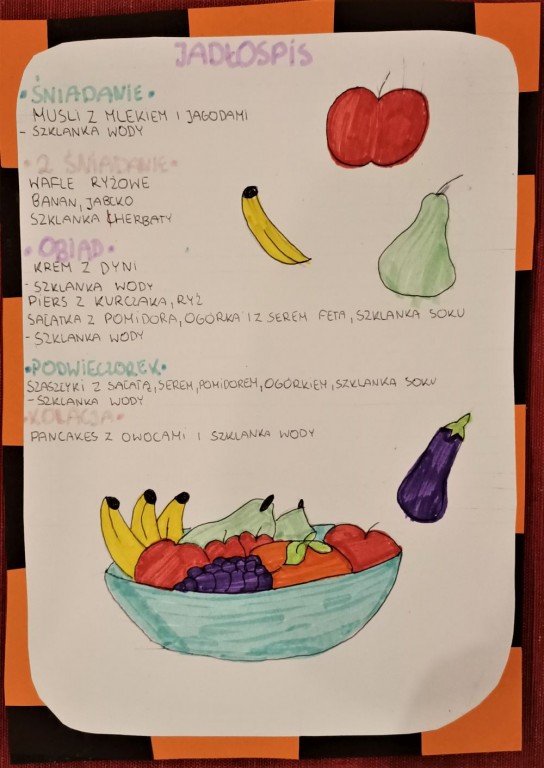 JADŁOSPIS
•ŚNIADANIE•
MUSLI Z MLEKIEM I JAGODAMI
- SZKLANKA WODY
•2 ŚNIADANIE•
WAFLE RYŻOWE
BANAN, JABŁKO
SZKLANKA HERBATY
•OBIAD•
KREM Z DYNI
- SZKLANKA WODY
PIERŚ Z KURCZAKA, RYŻ
SAŁATKA Z POMIDORA, OGÓRKA I Z SEREM FETA, SZKLANKA SOKU
- SZKLANKA WODY
•PODWIECZOREK•
SZASZŁYKI Z SAŁATĄ, SEREM, POMIDOREM, OGÓRKIEM, SZKLANKA SOKU
- SZKLANKA WODY
•KOLACJA•
PANCAKES Z OWOCAMI I SZKLANKA WODY